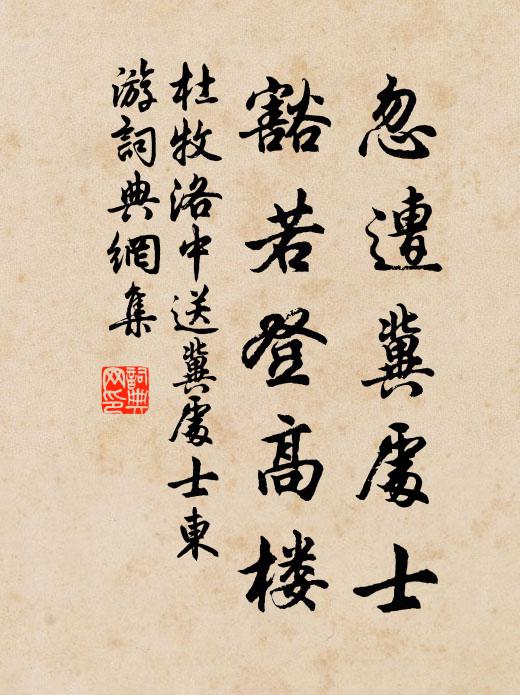 忽遭冀處士
豁若登高楼
杜牧洛中送冀處士東
游詞典網集
詞典網印